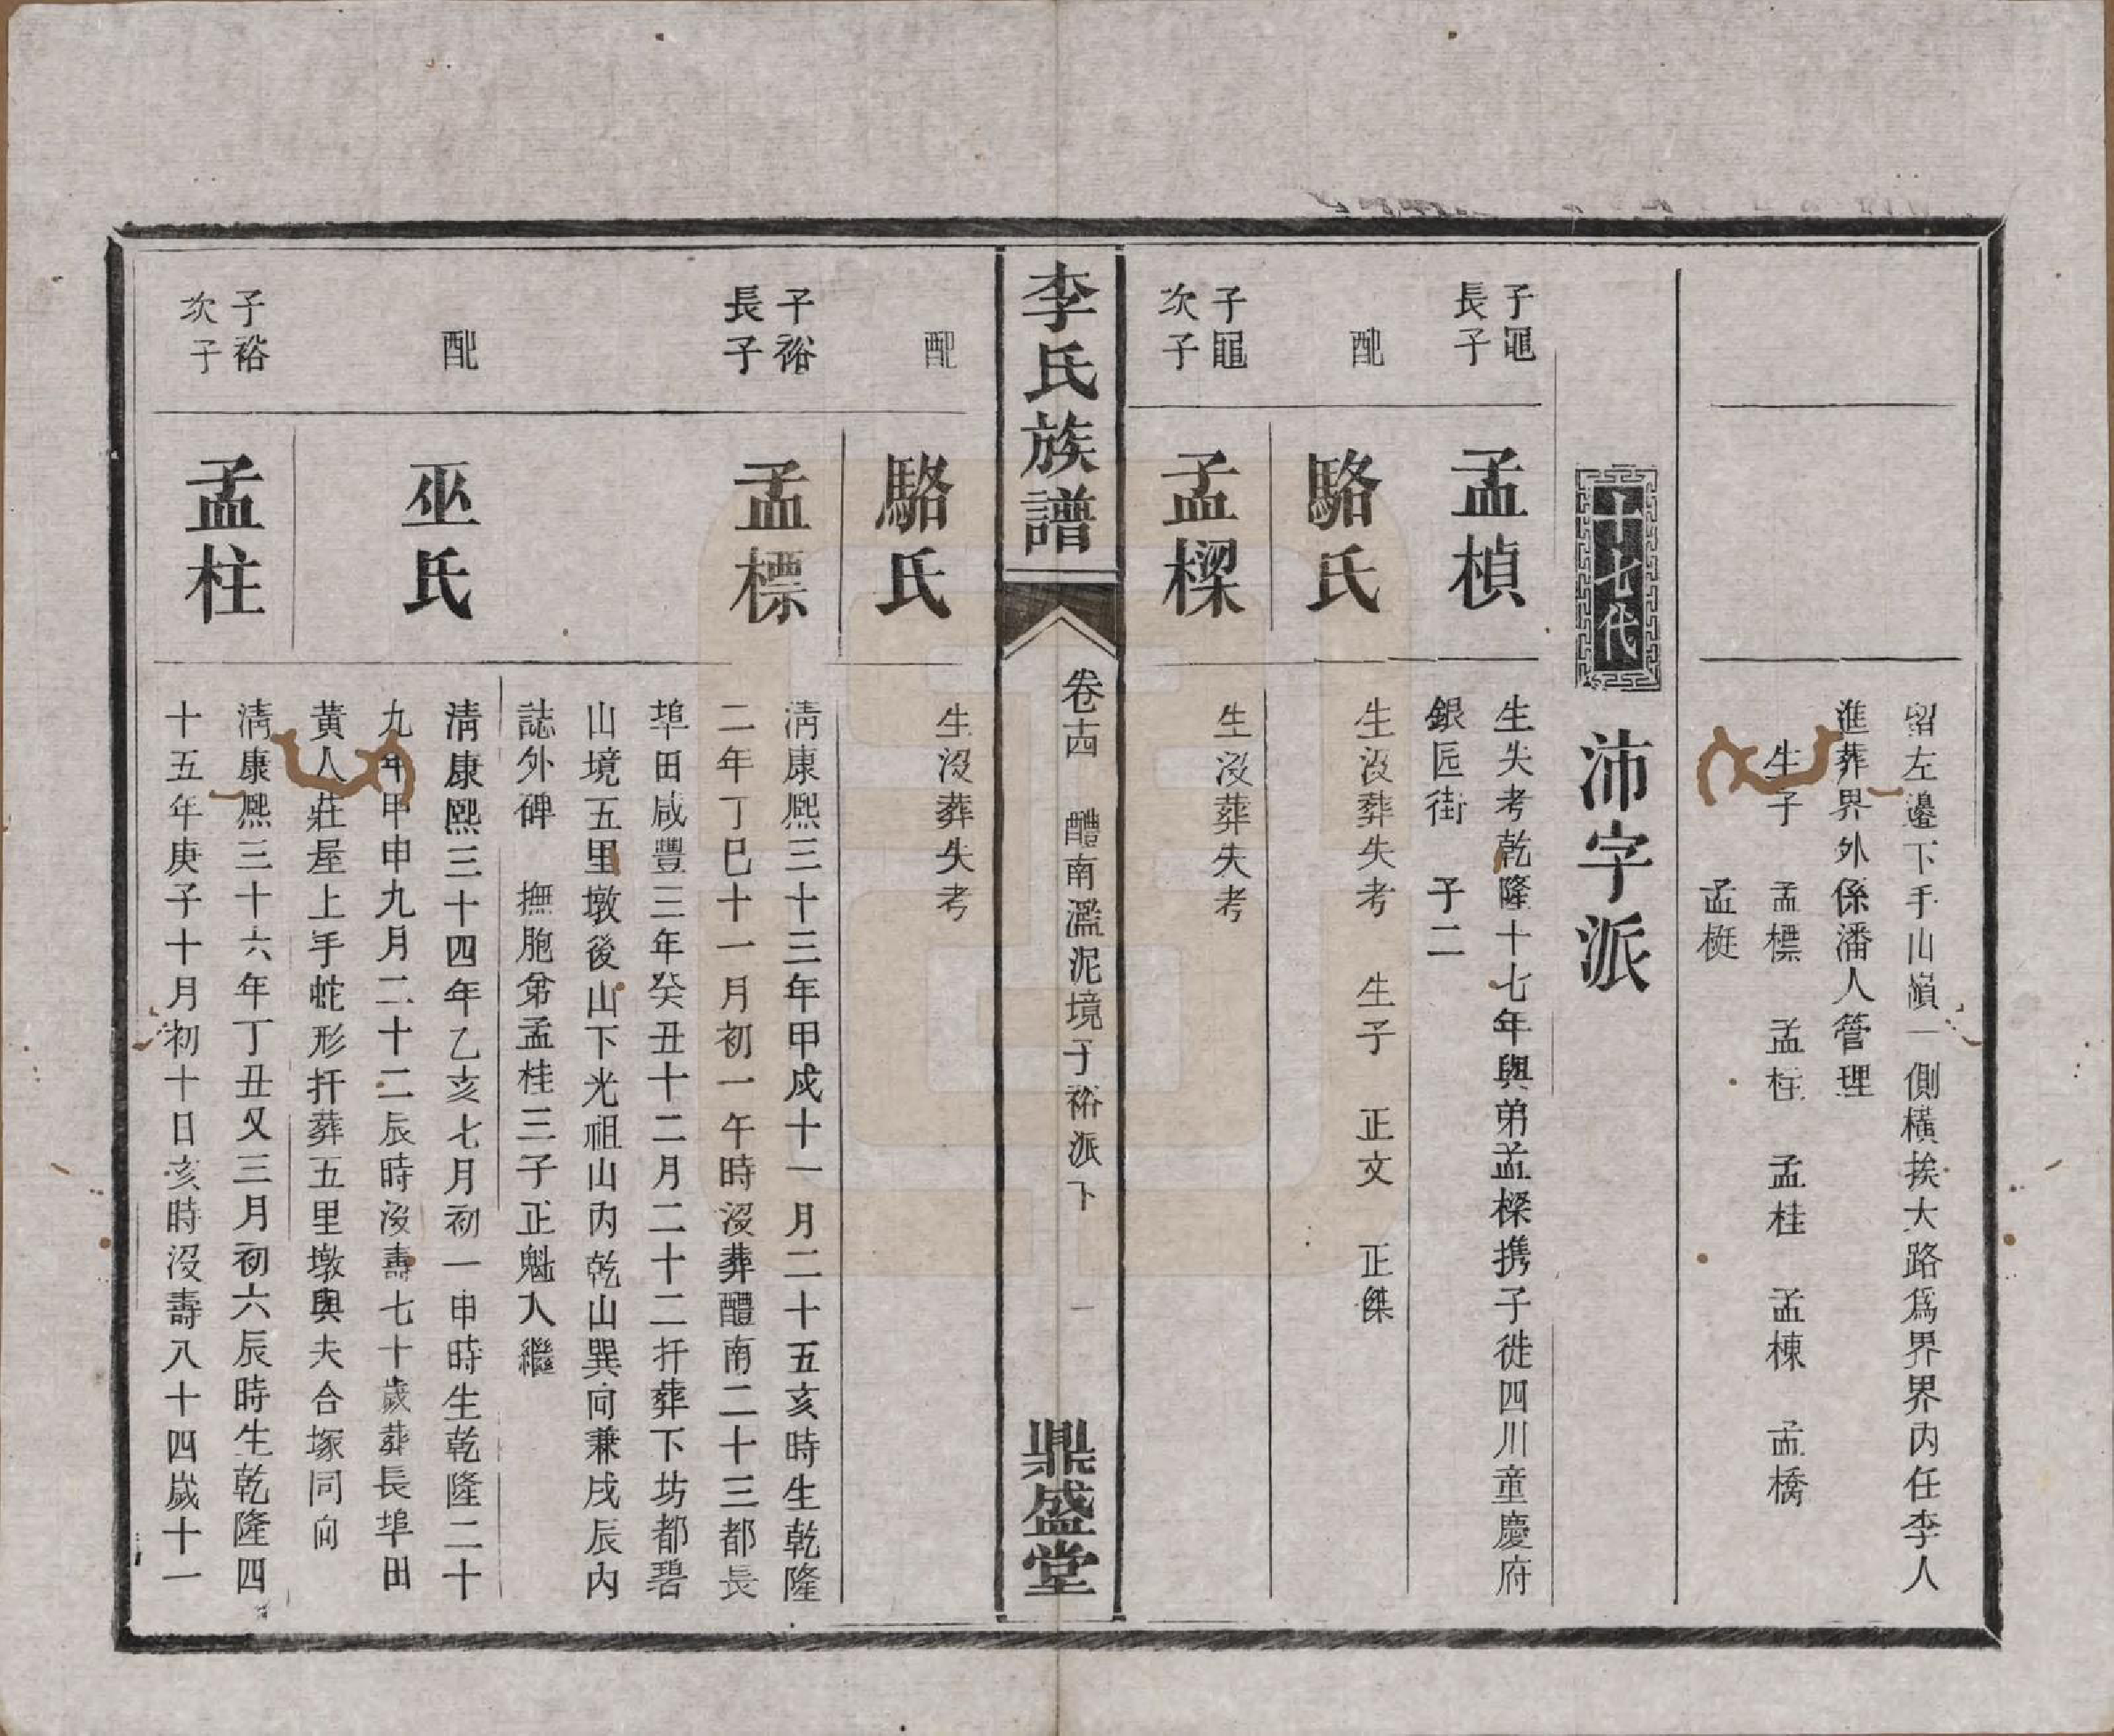 留左邊下手山嶺一側橫挨大路爲界界內任李人
進葬界外係潘人管理
生子 孟標 孟柱 孟桂 孟棟 孟橋
孟梃
十七代 沛字派
子黽長子 孟楨
生失考乾隆十七年與弟孟樑携子徙四川童慶府
銀匠街 子二
配 駱氏
生沒葬失考 生子 正文 正傑
子黽次子 孟樑
生沒葬失考
李氏族譜 卷十四 醴南濫泥境子裕派下 一 鼎盛堂
配 駱氏
生沒葬失考
子裕長子 孟標
清康熙三十三年甲戌十一月二十五亥時生乾隆
二年丁巳十一月初一午時沒葬醴南二十三都長
埠田咸豐三年癸丑十二月二十二扦葬下坊都碧
山境五里墩後山下光祖山內乾山巽向兼戌辰內
誌外碑 撫胞弟孟桂三子正魁入繼
配 巫氏
清康熙三十四年乙亥七月初一申時生乾隆二十
九年甲申九月二十二辰時沒壽七十歲葬長埠田
黃人莊屋上手蛇形扦葬五里墩與夫合塚同向
子裕次子 孟柱
清康熙三十六年丁丑又三月初六辰時生乾隆四
十五年庚子十月初十日亥時沒壽八十四歲十一